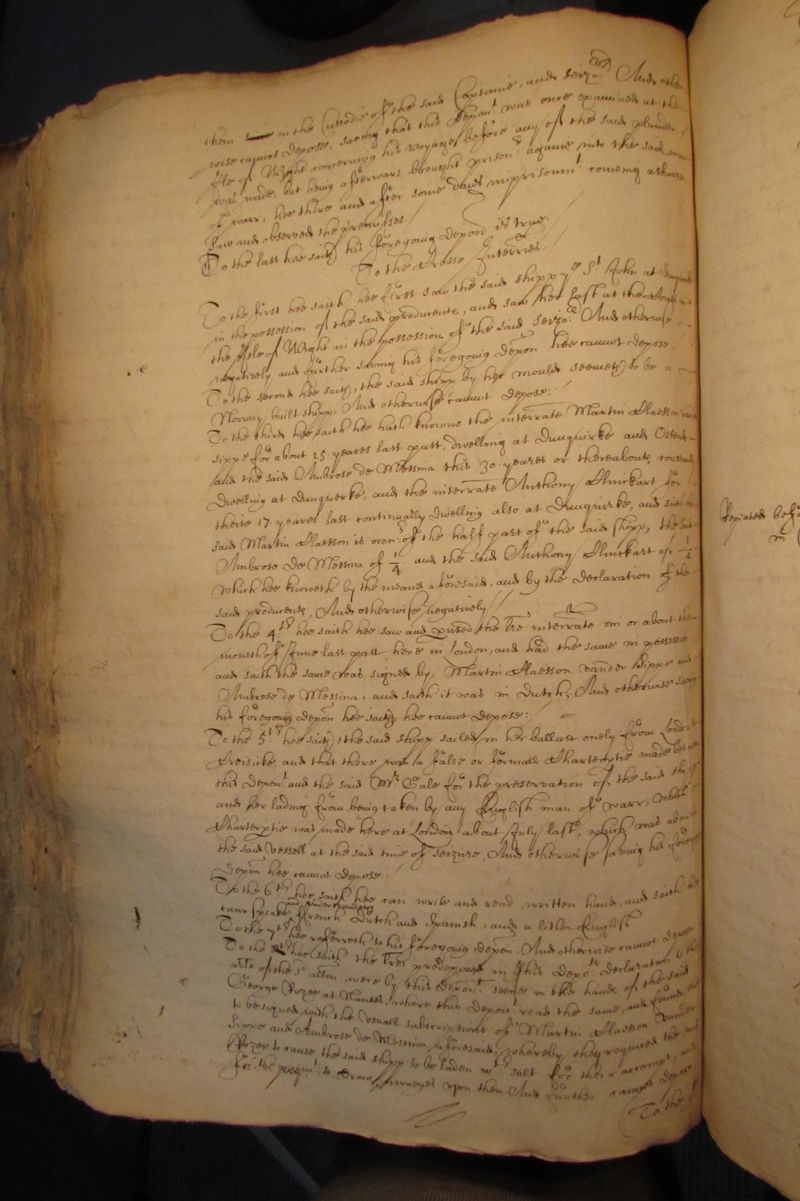 them in the Custodie of the said Captaine, and seizo:rs And other
wise cannot depose, saving that this depon:t was once examined at the
Ile of Wight concerning his voyage before any of the said plunder
was made, but being afterwars brought prison:r againe into the said man
of warr, hee there and after some dayes imprisonm:t coming ashoare
saw and observed the premisses.
To the last hee saith his foregoing depon is true
To the Crosse Interries.
To the first hee saith hee first saw the said shipp ye S:t John at Dunquirke
in the possession of the said producents, and saw her last at the
the Isle of Wight in the possession of the said seizo:rs And otherwise
negatively and further saving his foregoing depon hee cannot depose
To the second hee saith, the said shipp by her mould seemeth to be a
Norway built shipp, And otherwise cannot depose.
To the third hee saith hee hath knowne the interrate Martin Claesson vander
sippe for about 15 yeares last past dwelling at Dunquirke and Ostend
and the said Ambrose de Messina this 30 yeares or thereabouts constantly
dwelling at Dunquerke, and the interrate Anthony for
theise 17 yeares last continually dwelling also at Dunquirke, and saith the
said Martin Claesson is owner of the half part of the said shipp, the said
Ambrose de Messina of 1/4 and the said Anthony of 1/4
which hee knoweth by the meanes aforesaid, and by the declaration of the
said producents, And otherwise negatively
To the 4:th hee saith hee saw and the lre interrate on or about the
moneth of June last past here in London, and had the same in possession
and saith the same was signed by Martin Claesson vander sippe and
Ambrose de Messina, and saith it was in dutch, And otherwise saving
his foregoing depon hee saith hee cannot depose:
To the 5:th hee saith the said shipp sailed in her ballast onely from London to
Croisike, and that there was a false or formall Chartepartie made betweene
this depon:t and the said M:r Gale for the preservation of the said shipp
and her lading from being taken by any English man of warr, which
Charterptie was made here at London about July last, which was aboard
the said vessell at the said time of seizure, And otherwise saving his foregoing
depon hee cannot depose.
To the 6:th hee saith hee can write and read written hand, and saith hee
can speake and understand french dutch and Spanish, and a little English
To the 7:th hee referreth to his foregoing depon. And otherwise cannot depose
To the hee saith the lres predeposed in this depo:ts declaration to the
of the s:d allon were by this depon:t seene in the hands of the said
George at Nantes where this depon:t read the same, and found
to be signed with the usuall subscriptions of Martin Claesson vander
Sippe and Ambrose de Messina aforesaid, whereby they required the said
to cause the said shipp to be laden w:th salt for their accompt, and
for the paym:t to draw upon them And further cannot depose
To the
Repeated before